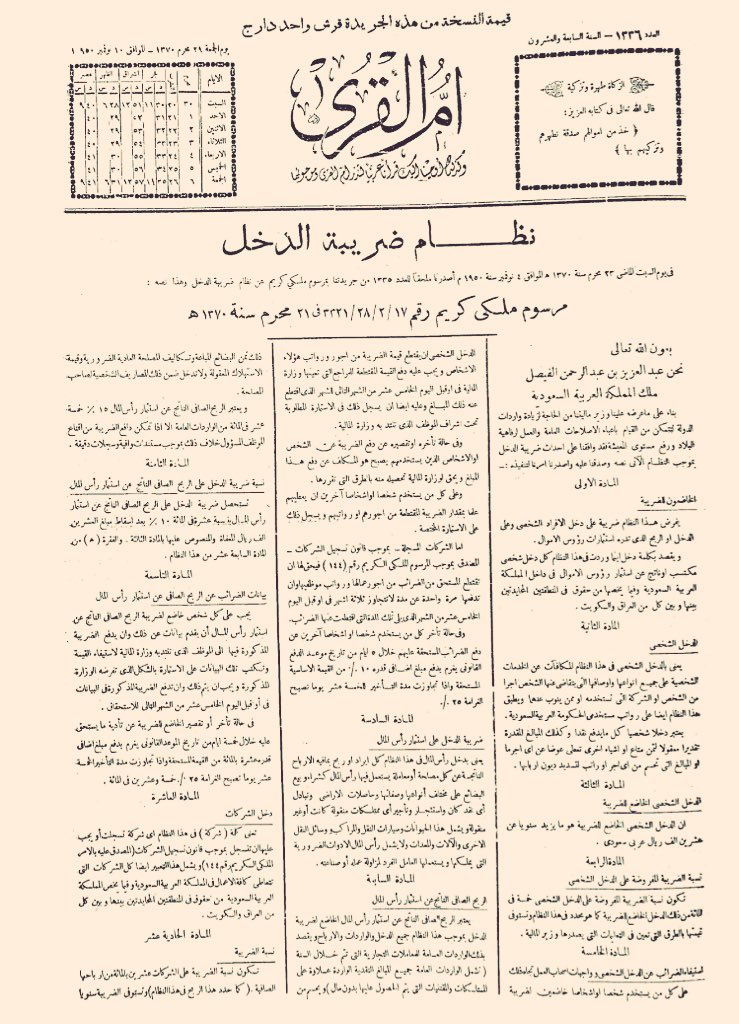 قيمة النسخة من هذه الجريدة قرش واحد دارج
العدد ١٣٣٦ — السنة السابعة والعشرون
يوم الجمعة ٢٩ محرم ١٣٧٠ — الموافق ١٠ نوفمبر ١٩٥٠
الزكاة طهرة وتزكية
قال الله تعالى في كتابه العزيز :
﴿ خذ من اموالهم صدقة تطهرهم
وتزكيهم بها ﴾
أم القرى
وكذلك أوحينا إليك قرآنا عربيا لتنذر أم القرى ومن حولها
الايام
السبت
الاحد
الاثنين
الثلاثاء
الاربعاء
الخميس
الجمعة
نظام ضريبة الدخل
فى يوم السبت الماضى ٢٣ محرم سنة ١٣٧٠ ه الموافق ٤ نوفمبر سنة ١٩٥٠ م أصدرنا ملحقا للعدد ١٣٣٥ من جريدتنا بمرسوم ملكي كريم عن نظام ضريبة الدخل وهذا نصه :
مرسوم ملكي كريم رقم ١٧/٢/٢٨/٣٣٢١ فى ٢١ محرم سنة ١٣٧٠ ه
بعون الله تعالى
نحن عبد العزيز بن عبد الرحمن الفيصل
ملك المملكة العربية السعودية
بناء على ماعرضه علينا وزير ماليتنا من الحاجة لزيادة واردات
الدولة لتتمكن من القيام باعباء الاصلاحات العامة والعمل لرفاهية
البلاد ورفع مستوى المعيشة فقد وافقنا على احداث ضريبة الدخل
بموجب النظام الآتى نصه وصدقنا عليه واصدرنا امرنا لتنفيذه :—
المادة الاولى
الخاضعون للضريبة
يفرض هذا النظام ضريبة على دخل الافراد الشخصى وعلى
الدخل او الربح الذى تدره استثمارات رؤوس الاموال.
ويقصد بكلمة دخل اينما وردت في هذا النظام كل دخل شخصى
مكتسب اوناتج عن استثمار رؤوس الاموال فى داخل المملكة
العربية السعودية وفيما يخصها من حقوق فى المنطقتين المحايدتين
بينها وبين كل من العراق والكويت .
المادة الثانية
الدخل الشخصى
يعنى بالدخل الشخصى فى هذا النظام المكافآت عن الخدمات
الشخصية على جميع انواعها واوصافها التى يتقاضى عنها الشخص اجرا
من الشخص او الشركة التى تستخدمه او ممن ينوب عنها ويطبق
هذا النظام ايضا على رواتب مستخدمى الحكومة العربية السعودية.
يعتبر دخلا شخصيا كل مايدفع نقدا وكذلك المبالغ المقدرة
تقديرا معقولا لثمن متاع او اشياء اخرى تعطى عوضا عن اى اجر ما
او المبالغ التى تحسم من اى اجر او راتب لتسديد ديون اربابها .
المادة الثالثة
الدخل الشخصى الخاضع للضريبة
ان الدخل الشخصى الخاضع للضريبة هو ما يزيد سنويا عن
عشرين الف ريال عربى سعودى .
المادة الرابعة
نسبة الضريبة المفروضة على الدخل الشخصى
تكون نسبة الضريبة المفروضة على الدخل الشخصى خمسة فى
المائة من ذلك الدخل الخاضع للضريبة كما هو محدد فى هذا النظام وتستوفى
قيمتها بالطرق التى تعين فى التعليمات التى يصدرها وزير المالية .
المادة الخامسة
استيفاء الضرائب عن الدخل الشخصى وواجبات اصحاب العمل تجاه ذلك
على كل من يستخدم شخصا اواشخاصا خاضعين لضريبة
الدخل الشخصى ان يقتطع قيمة الضريبة من اجور ورواتب هؤلاء
الاشخاص ويجب عليه دفع القيمة المقتطعة للمراجع التى تعينها وزارة
المالية فى اوقبل اليوم الخامس عشر من الشهر التالى للشهر الذى اقتطع
عنه ذلك المبلغ وعليه ايضا ان يسجل ذلك فى الاستمارة المطلوبة
تحت اشراف الموظف الذى تنتدبه وزارة المالية .
وفى حالة تأخره اوتقصيره عن دفع الضريبة عن الشخص
او الاشخاص الذين يستخدمهم يصبح هو المكلف عن دفع هذا
المبلغ ويحق لوزارة المالية تحصيله منه بالطرق التى تقررها .
وعلى كل من يستخدم شخصا اواشخاصا آخرين ان يعطيهم
علما بمقدار الضريبة المقتطعة من اجورهم او رواتبهم ويسجل ذلك
على الاستمارة المختصة .
اما الشركات المسجلة — بموجب قانون تسجيل الشركات —
المصدق بموجب المرسوم الملكى الكريم رقم (١٤٤) فيحق لها ان
تقتطع المستحق من الضرائب من اجور عمالها ورواتب موظفيها وان
تدفعها مرة واحدة عن مدة لاتتجاوز ثلاثة اشهر فى اوقبل اليوم
الخامس عشر من الشهر الذى يلى تلك المدة التى اقتطعت عنها الضرائب.
وفى حالة تأخر كل من يستخدم شخصا او اشخاصا آخرين عن
دفع الضرائب المستحقة عليهم خلال ٥ ايام من تاريخ موعد الدفع
القانونى يغرم بدفع مبلغ اضافى قدره ١٠ ٪ من القيمة الاساسية
المستحقة واذا تجاوزت مدة التأخير الخمسة عشر يوما تصبح
الغرامة ٢٥ ٪.
المادة السادسة
ضريبة الدخل على استثمار رأس المال
يعنى بدخل رأس المال فى هذا النظام كل ايراد او ربح بما فيه الارباح
الناتجة عن كل مصلحة او معاملة يستعمل فيها رأس المال كشراء وبيع
البضائع على مختلف أنواعها وصفاتها وحاصلات الاراضى وتبادل
أى نقد كان واستئجار وتأجير أى ممتلكات منقولة كانت أوغير
منقولة ويشمل هذا الحيوانات وسيارات النقل والمراكب ووسائل النقل
الاخرى والآلات والمعدات ولا يشمل رأس المال الادوات الضرورية
التى يمتلكها ويستعملها العامل الفرد لمزاولة عمله أو صناعته .
المادة السابعة
الربح الصافى الناتج عن استثمار رأس المال
يعتبر الربح الصافى الناتج عن استثمار رأس المال الخاضع لضريبة
الدخل بموجب هذا النظام جميع الدخل والواردات والارباح ويقصد
بذلك الواردات العامة للمعاملات التجارية التى تتم خلال السنة
( تشمل الواردات العامة جميع المبالغ النقدية الواردة علاوة على
الممتلكات والمقتنيات التى يتم الحصول عليها بدون مال) ويحسم من
ذلك ثمن البضائع المباعة وتكاليف المصلحة العادية الضرورية وقيمة
الاستهلاك المعقولة ولا تدخل ضمن ذلك المصاريف الشخصية لصاحب
المصلحة .
ويعتبر الربح الصافى الناتج عن استثمار رأس المال ١٥ ٪ خمسة
عشر فى المائة من الواردات العامة الا اذا تمكن دافع الضريبة من اقناع
الموظف المسؤول خلاف ذلك بموجب مستندات وافية وسجلات دقيقة .
المادة الثامنة
نسبة ضريبة الدخل على الربح الصافى الناتج عن استثمار رأس المال
تستحصل ضريبة الدخل على الربح الصافى الناتج عن استثمار
رأس المال بنسبة عشرة فى المائة ١٠ ٪ بعد اسقاط مبلغ العشرين
الف ريال المعفاة والمنصوص عليها بالمادة الثالثة . والفقرة (ه) من
المادة السابعة عشر من هذا النظام .
المادة التاسعة
بيانات الضرائب عن الربح الصافى عن استثمار رأس المال
يجب على كل شخص خاضع لضريبة الربح الصافى الناتج عن
استثمار رأس المال أن يقدم بيانات عن ذلك وان يدفع الضريبة
المذكورة فيها الى الموظف الذى تنتدبه وزارة المالية لاستيفاء القيمة
وتكتب تلك البيانات على الاستمارة بالشكل الذى تفرضه الوزارة
المذكورة ويجب ان يتم ذلك وان تدفع الضريبة المذكورة فى البيانات
فى أوقبل اليوم الخامس عشر من الشهر التالى للاستحقاق .
فى حالة تأخر أو تقصير الخاضع للضريبة عن تأدية ما يستحق
عليه خلال خمسة ايام من تاريخ الموعد القانونى يغرم بدفع مبلغ اضافى
قدره عشرة بالمائة من القيمة المستحقة واذا تجاوزت مدة التأخير الخمسة
عشر يوما تصبح الغرامة ٢٥ ٪ خمسة وعشرين فى المائة .
المادة العاشرة
دخل الشركات
تعنى كلمة ( شركة ) فى هذا النظام اى شركة تسجلت أو يجب
عليها ان تتسجل بموجب قانون تسجيل الشركات (المصدق عليه بالامر
الملكى الكريم رقم ١٤٤) ويشمل هذا التعبير ايضا كل الشركات التى
تتعاطى كافة الاعمال فى المملكة العربية السعودية وفيما يخص المملكة
العربية السعودية من حقوق فى المنطقتين المحايدتين بينها وبين كل
من العراق والكويت .
المادة الحادية عشر
نسبة الضريبة
تكون نسبة الضريبة على الشركات عشرين بالمائة من ارباحها
الصافية . (كما حدد هذا الربح فى هذا النظام) وتستوفى الضريبة سنويا